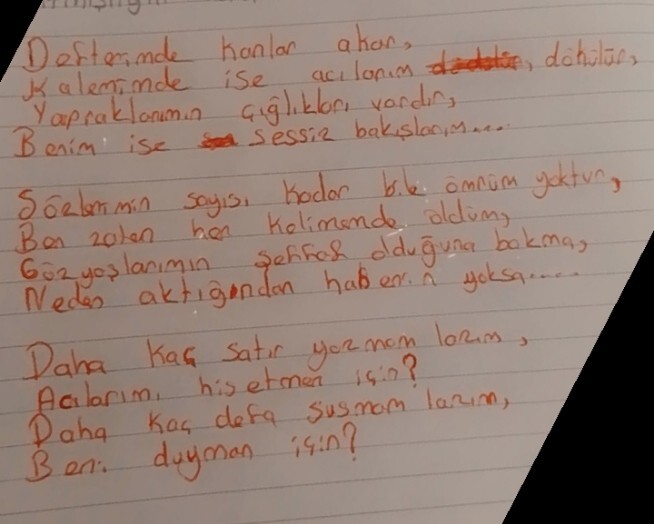 Defterimde kanlar akar,
Kalemimde ise acılarım dökülür,
Yapraklarımın çığlıkları vardır,
Benim ise sessiz bakışlarım....
Sözlerimin sayısı kadar bile ömrüm yoktur,
Ben zaten her kelimende öldüm,
Gözyaşlarımın şeffaf olduğuna bakma,
Neden aktığından haberin yoksa.....
Daha kaç satır yazmam lazım,
Acılarımı hisetmen için?
Daha kaç defa susmam lazım,
Beni duyman için?